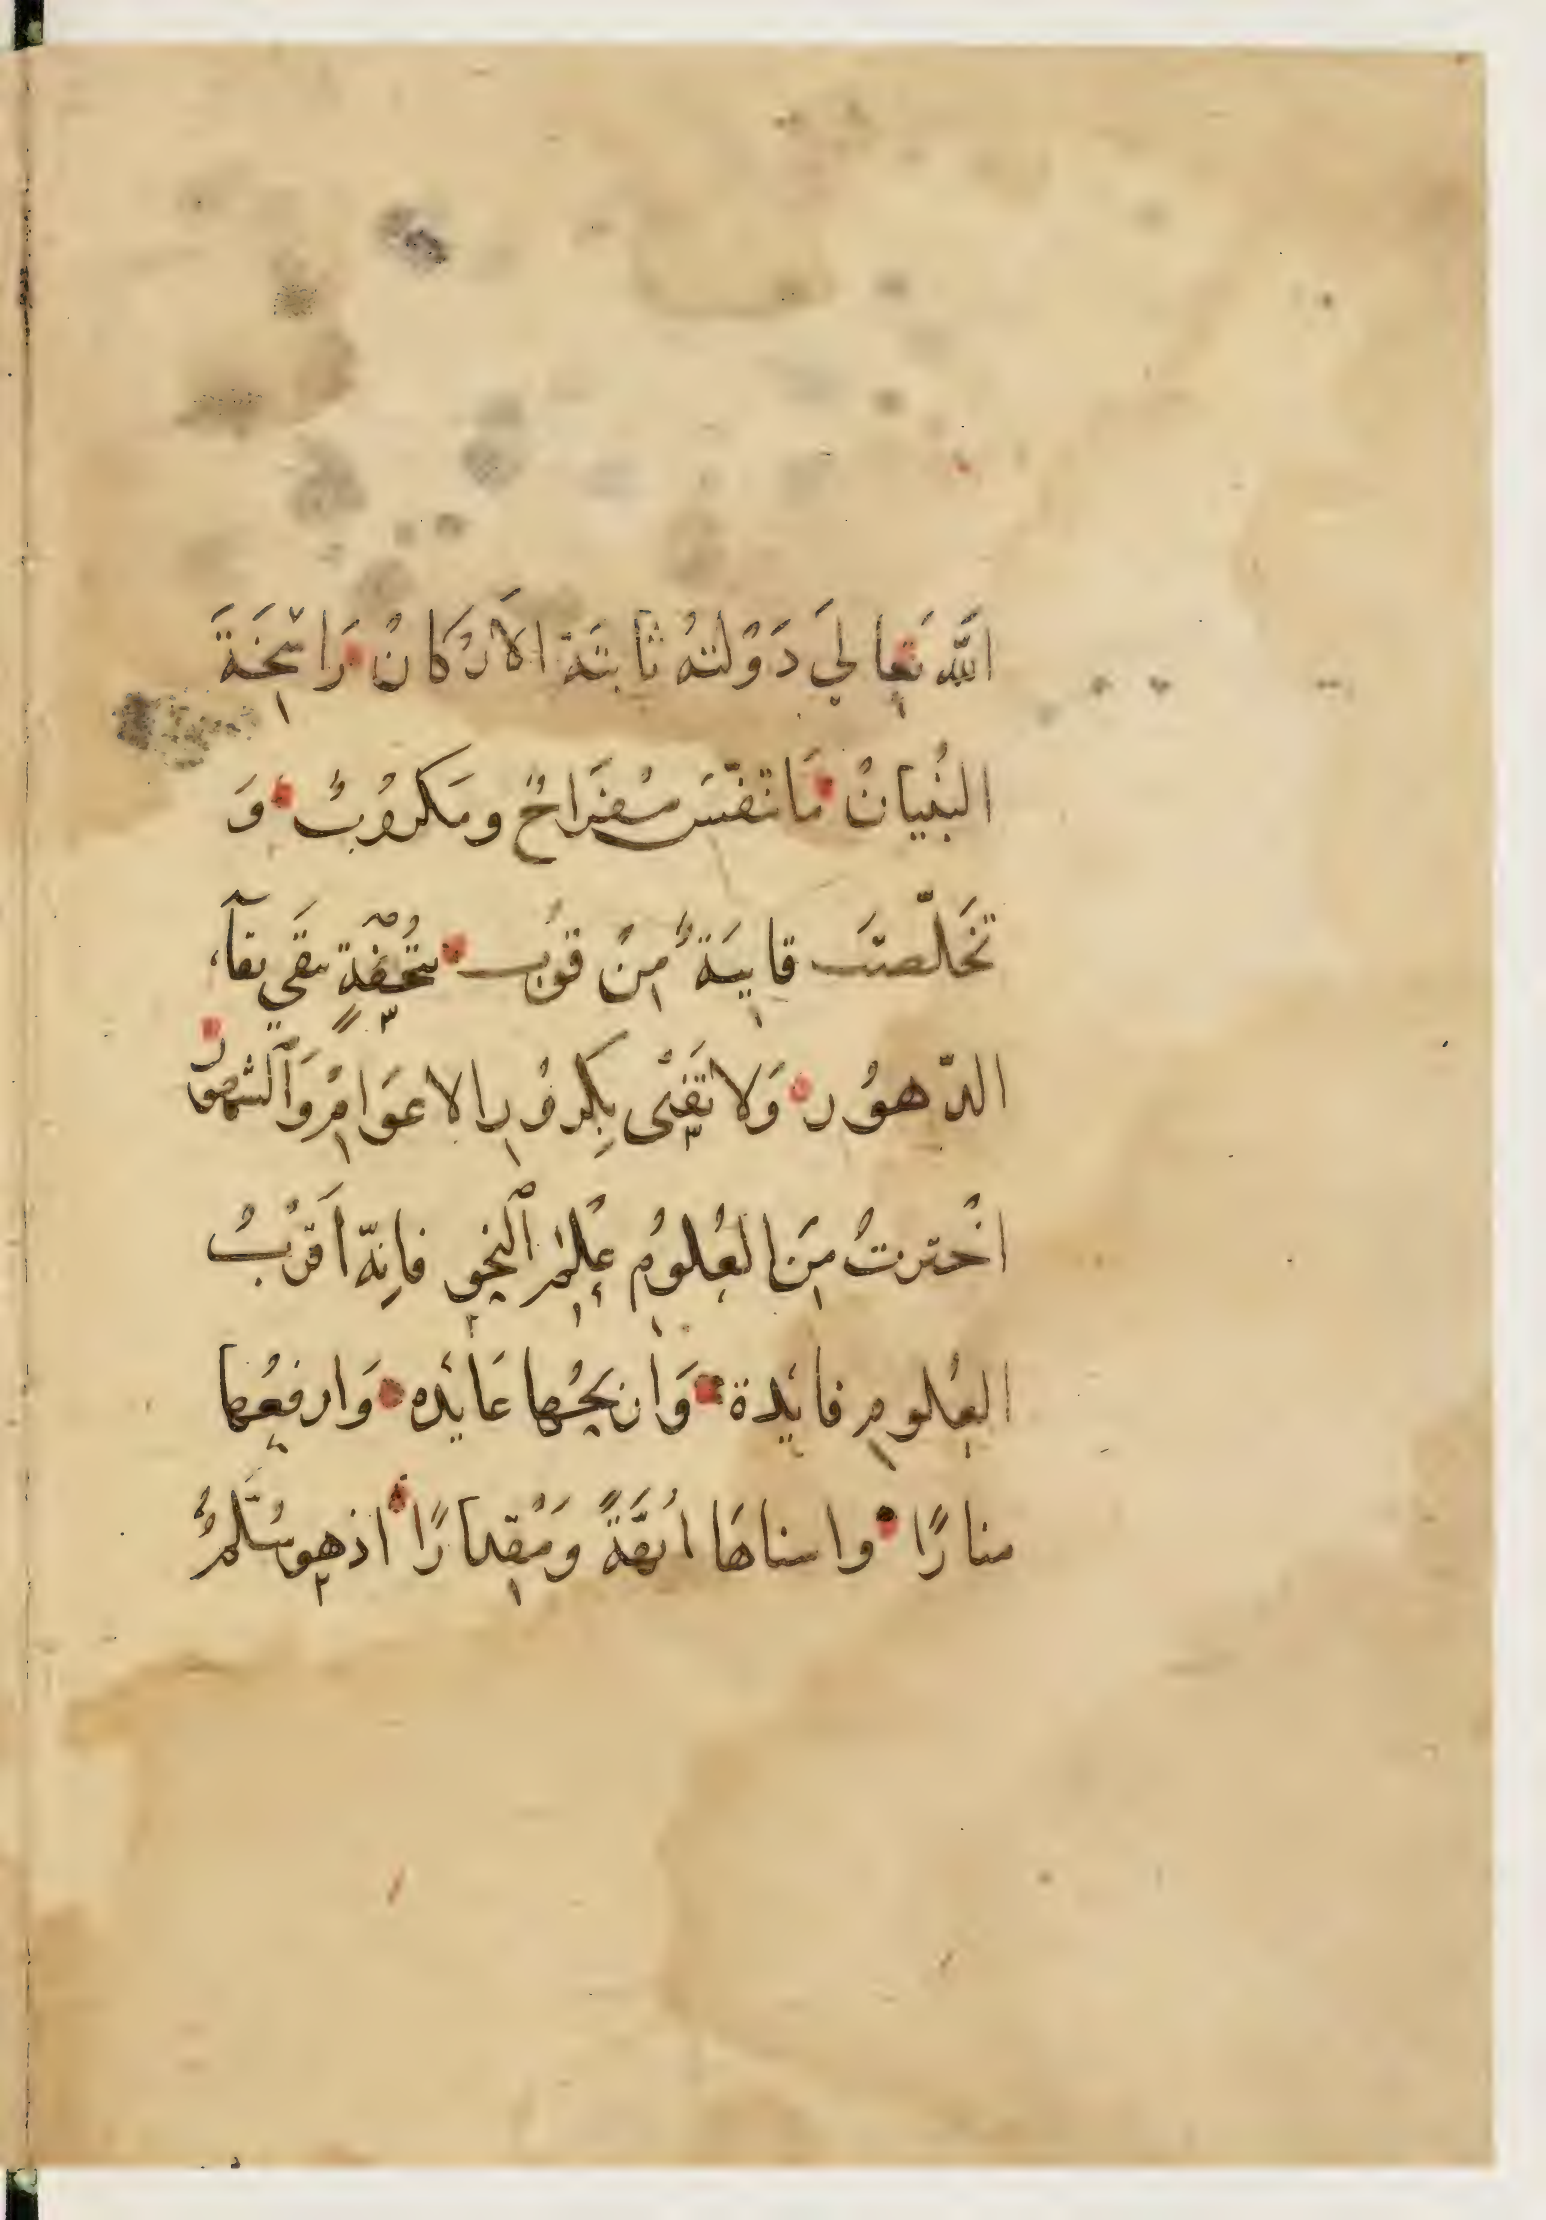 اللَّه تَعالَى دَوْلَتُه ثابَتَة الاَرْكَانْ رَاسِخَةَ
البُنْيَانْ مَا تنفّسَ مِفْرَاحٌ ومَكْرُوبٌ وَ
تَخَلّصَتَ قايبَةٌ مِنْ قوُب بتُحْفَةٍ تبقَى بقآء
الدّهوُر وَلا تَفْنَى بِكرُوُرِ الاعوَامِ وَالشّهوُر
اخْترتُ مِنَ العُلوُمِ عِلْمَ النحوِ فانِهّ اَقْرَبُ
العُلومِ فائدة وَانجحُها عَائده وَارفعُها
منارًا واسناهَا اُبّهَةً ومِقدارًا اذ هو سُلَّمٌ